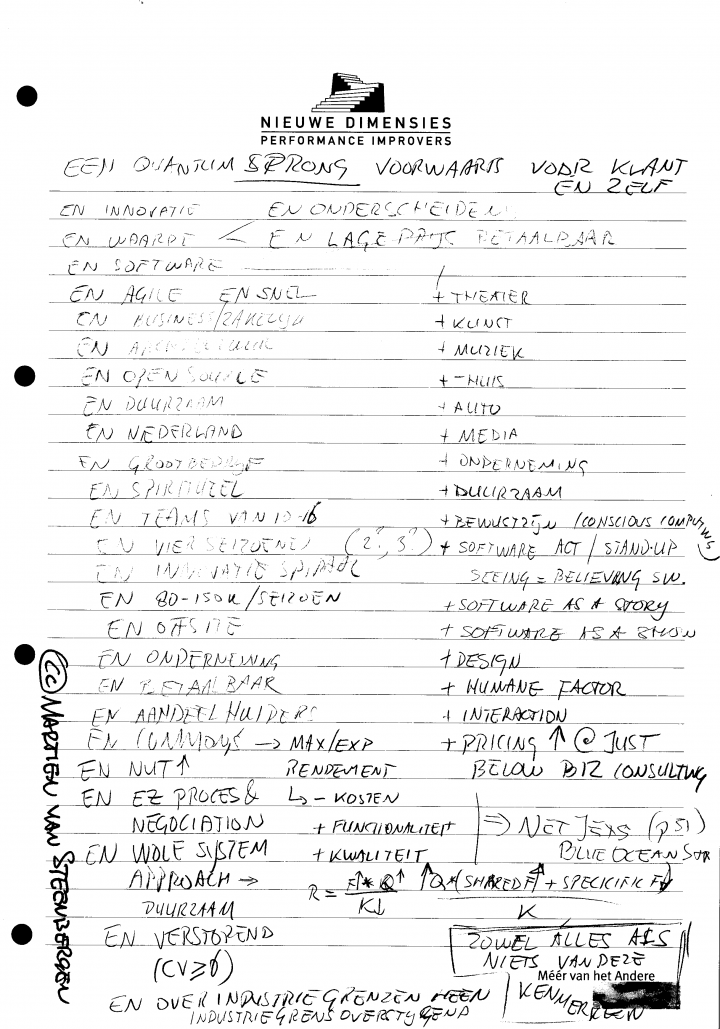 NIEUWE DIMENSIES
PERFORMANCE IMPROVERS
EEN QUANTUM SPRONG VOORWAARTS VOOR KLANT
EN ZELF
EN INNOVATIE EN ONDERSCHEIDEN
EN WAARDE < EN LAGE PRIJS BETAALBAAR
EN SOFTWARE
EN AGILE EN SNEL + THEATER
EN BUSINESS/ZAKELIJK + KUNST
EN ARCHITECTUUR + MUZIEK
EN OPEN SOURCE + -HUIS
EN DUURZAAM + AUTO
EN NEDERLAND + MEDIA
EN GROOTBEDRIJF + ONDERNEMING
EN SPIRITUEEL + DUURZAAM
EN TEAMS VAN 10-16 + BEWUSTZIJN (CONSCIOUS COMPUTING)
EN VIER SEIZOENEN (2?, 3?) + SOFTWARE ACT / STAND-UP
EN INNOVATIE SPIRAAL SEEING = BELIEVING SW.
EN 80-150K/SEIZOEN + SOFTWARE AS A STORY
EN OFFSITE + SOFTWARE AS A SHOW
EN ONDERNEMING + DESIGN
EN BETAALBAAR + HUMANE FACTOR
EN AANDEELHUIDERS + INTERACTION
EN COMMONS → MAX/EXP + PRICING ↑ @ JUST
EN NUT↑ RENDEMENT BELOW BIZ CONSULTING
EN EZ PROCES & ↳ - KOSTEN
NEGOCIATION + FUNCTIONALITEIT ⇒ NET JETS (p 51)
EN WOLE SYSTEM + KWALITEIT BLUE OCEAN STR
APPROACH → R = F↑* Q↑ ↑Q*(SHARED F↑ + SPECIFIK F↓)
DUURZAAM K↓ K
EN VERSTOREND ZOWEL ALLES ALS
(CV≥6) NIETS VAN DEZE
Méér van het Andere
KENMERKEN
EN OVER INDUSTRIE GRENZEN HEEN
INDUSTRIEGRENS OVERSTYGEND
(cc) MARTIEN VAN STEENBERGEN